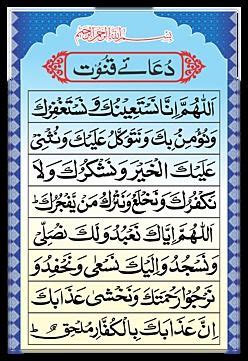 بِسْمِ اللهِ الرَّحْمٰنِ الرَّحِيْمِ
دُعائے قنوت
اَللّٰهُمَّ اِنَّا نَسْتَعِيْنُكَ وَنَسْتَغْفِرُكَ
وَنُؤْمِنُ بِكَ وَنَتَوَكَّلُ عَلَيْكَ وَنُثْنِىْ
عَلَيْكَ الْخَيْرَ وَنَشْكُرُكَ وَلَا
نَكْفُرُكَ وَنَخْلَعُ وَنَتْرُكُ مَنْ يَّفْجُرُكَ ط
اَللّٰهُمَّ اِيَّاكَ نَعْبُدُ وَلَكَ نُصَلِّىْ
وَنَسْجُدُ وَاِلَيْكَ نَسْعٰى وَنَحْفِدُ وَ
نَرْجُوْا رَحْمَتَكَ وَنَخْشٰى عَذَابَكَ
اِنَّ عَذَابَكَ بِالْكُفَّارِ مُلْحِقٌ ط